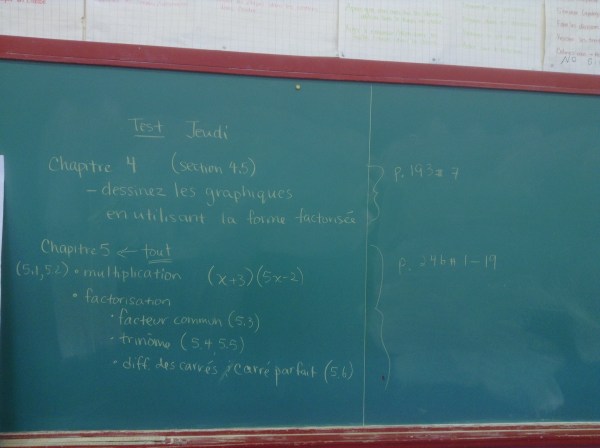 Test Jeudi
Chapitre 4 (section 4.5)
- dessinez les graphiques
en utilisant la forme factorisée
p. 193 # 7
Chapitre 5 ← tout
(5.1, 5.2) • multiplication (x+3)(5x-2)
• factorisation
• facteur commun (5.3)
• trinôme (5.4, 5.5)
• diff. des carrés, carré parfait (5.6)
p. 246 # 1-19